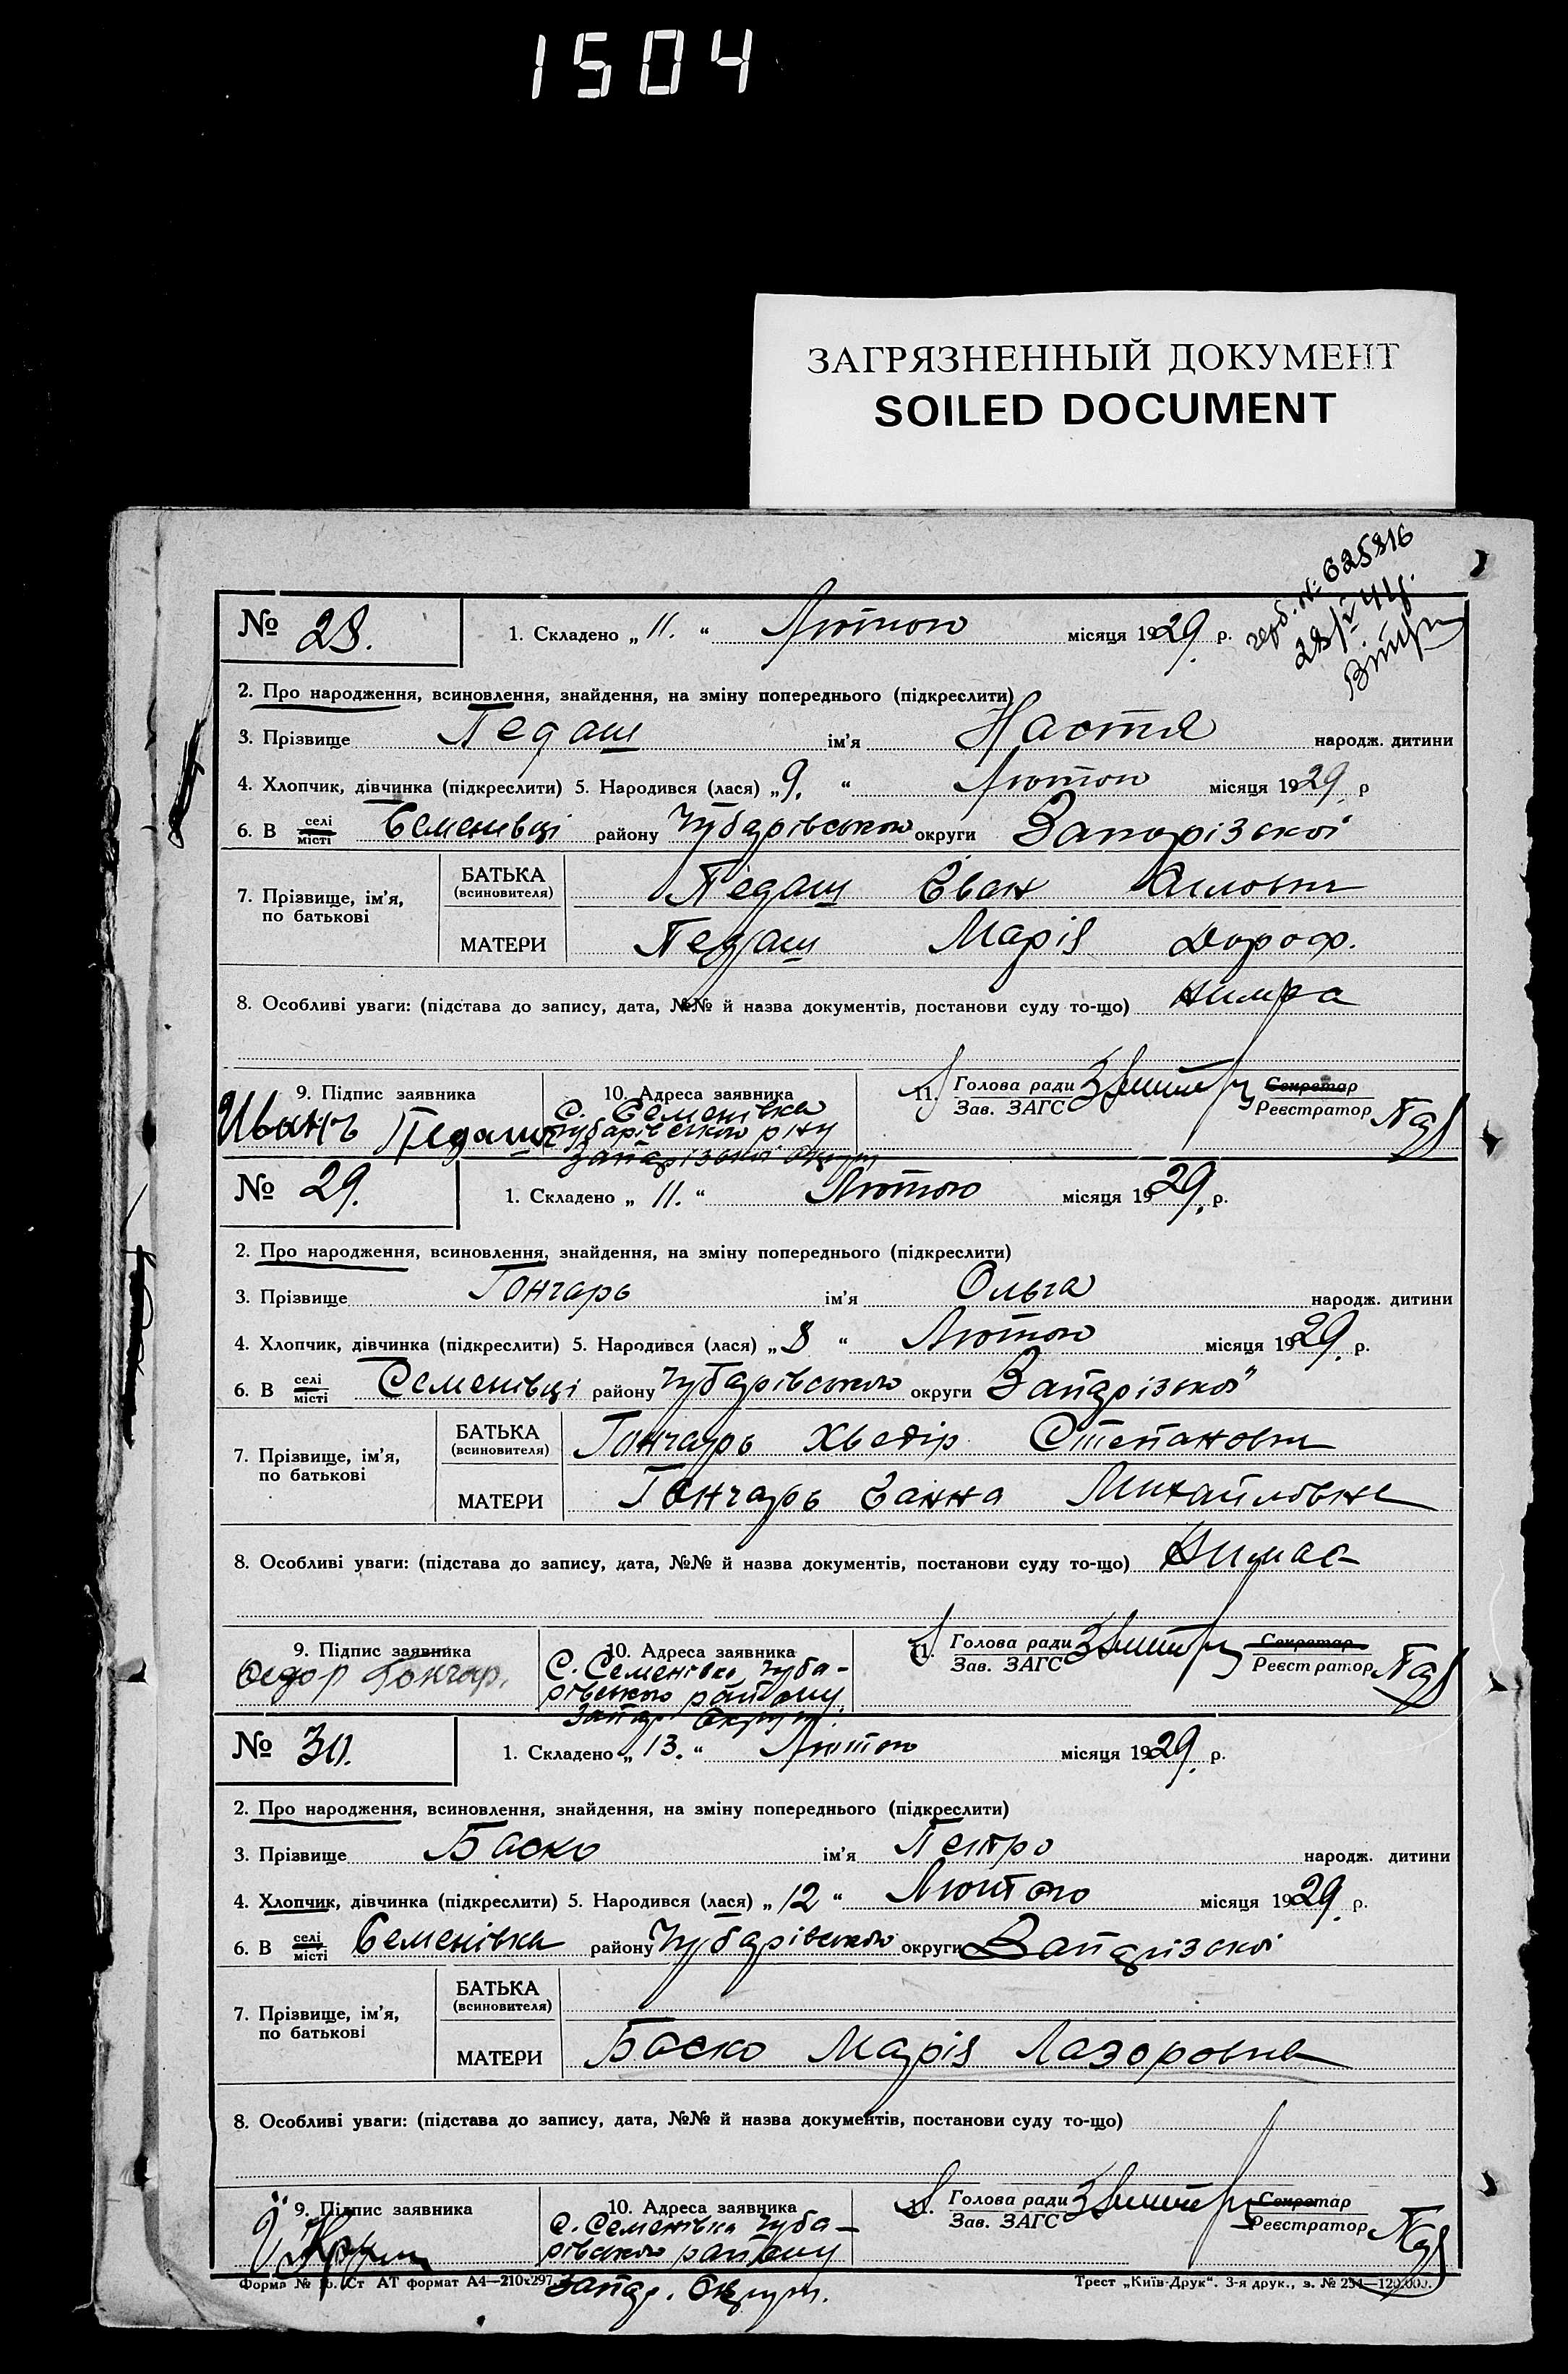 1504
ЗАГРЯЗНЕННЫЙ ДОКУМЕНТ
SOILED DOCUMENT
герб. № 625816
№ 28. 1. Складено „ 11. “ Лютого місяця 1929. р.
2. Про народження, всиновлення, знайдення, на зміну попереднього (підкреслити)
3. Прізвище Педаш ім'я Настя народж. дитини
4. Хлопчик, дівчинка (підкреслити) 5. Народився (лася) „ 9. “ Лютого місяця 1929. р
6. В селі місті Семенівці району Чубарівського округи Запорізської
7. Прізвище, ім'я, по батькові
БАТЬКА (всиновителя) Педаш Єван
МАТЕРИ Педаш Марія Дороф.
8. Особливі уваги: (підстава до запису, дата, №№ й назва документів, постанови суду то-що) Нимає
9. Підпис заявника 10. Адреса заявника 11. Голова ради Зав. ЗАГС Секретар Реєстратор
Иванъ Педашъ
С. Семенівка
Чубарівського р-ну
Запорізької Округи
№ 29. 1. Складено „ 11. “ Лютого місяця 1929. р.
2. Про народження, всиновлення, знайдення, на зміну попереднього (підкреслити)
3. Прізвище Гончарь ім'я Ольга народж. дитини
4. Хлопчик, дівчинка (підкреслити) 5. Народився (лася) „ 8 “ Лютого місяця 1929. р.
6. В селі місті Семенівці району Чубарівського округи Запорізької
7. Прізвище, ім'я, по батькові
БАТЬКА (всиновителя) Гончарь Хведір Степанович
МАТЕРИ Гончарь Ганна Михайловна
8. Особливі уваги: (підстава до запису, дата, №№ й назва документів, постанови суду то-що) Нимає
9. Підпис заявника 10. Адреса заявника 11. Голова ради Зав. ЗАГС Секретар Реєстратор
Федор Гончар.
С. Семенівка Чуба-
рівського району
Запор. Округи.
№ 30. 1. Складено „ 13. “ Лютого місяця 1929. р.
2. Про народження, всиновлення, знайдення, на зміну попереднього (підкреслити)
3. Прізвище Баско ім'я Петро народж. дитини
4. Хлопчик, дівчинка (підкреслити) 5. Народився (лася) „ 12 “ Лютого місяця 1929. р.
6. В селі місті Семенівка району Чубарівського округи Запорізскої
7. Прізвище, ім'я, по батькові
БАТЬКА (всиновителя)
МАТЕРИ Баско Марія Лазоровна
8. Особливі уваги: (підстава до запису, дата, №№ й назва документів, постанови суду то-що)
9. Підпис заявника 10. Адреса заявника 11. Голова ради Зав. ЗАГС Секретар Реєстратор
С. Семенівка Чуба-
рівського району
Запор. Округи.
Ст АТ формат А4—210x297 Трест „Київ-Друк“. 3-я друк., з. № 234—120.000.